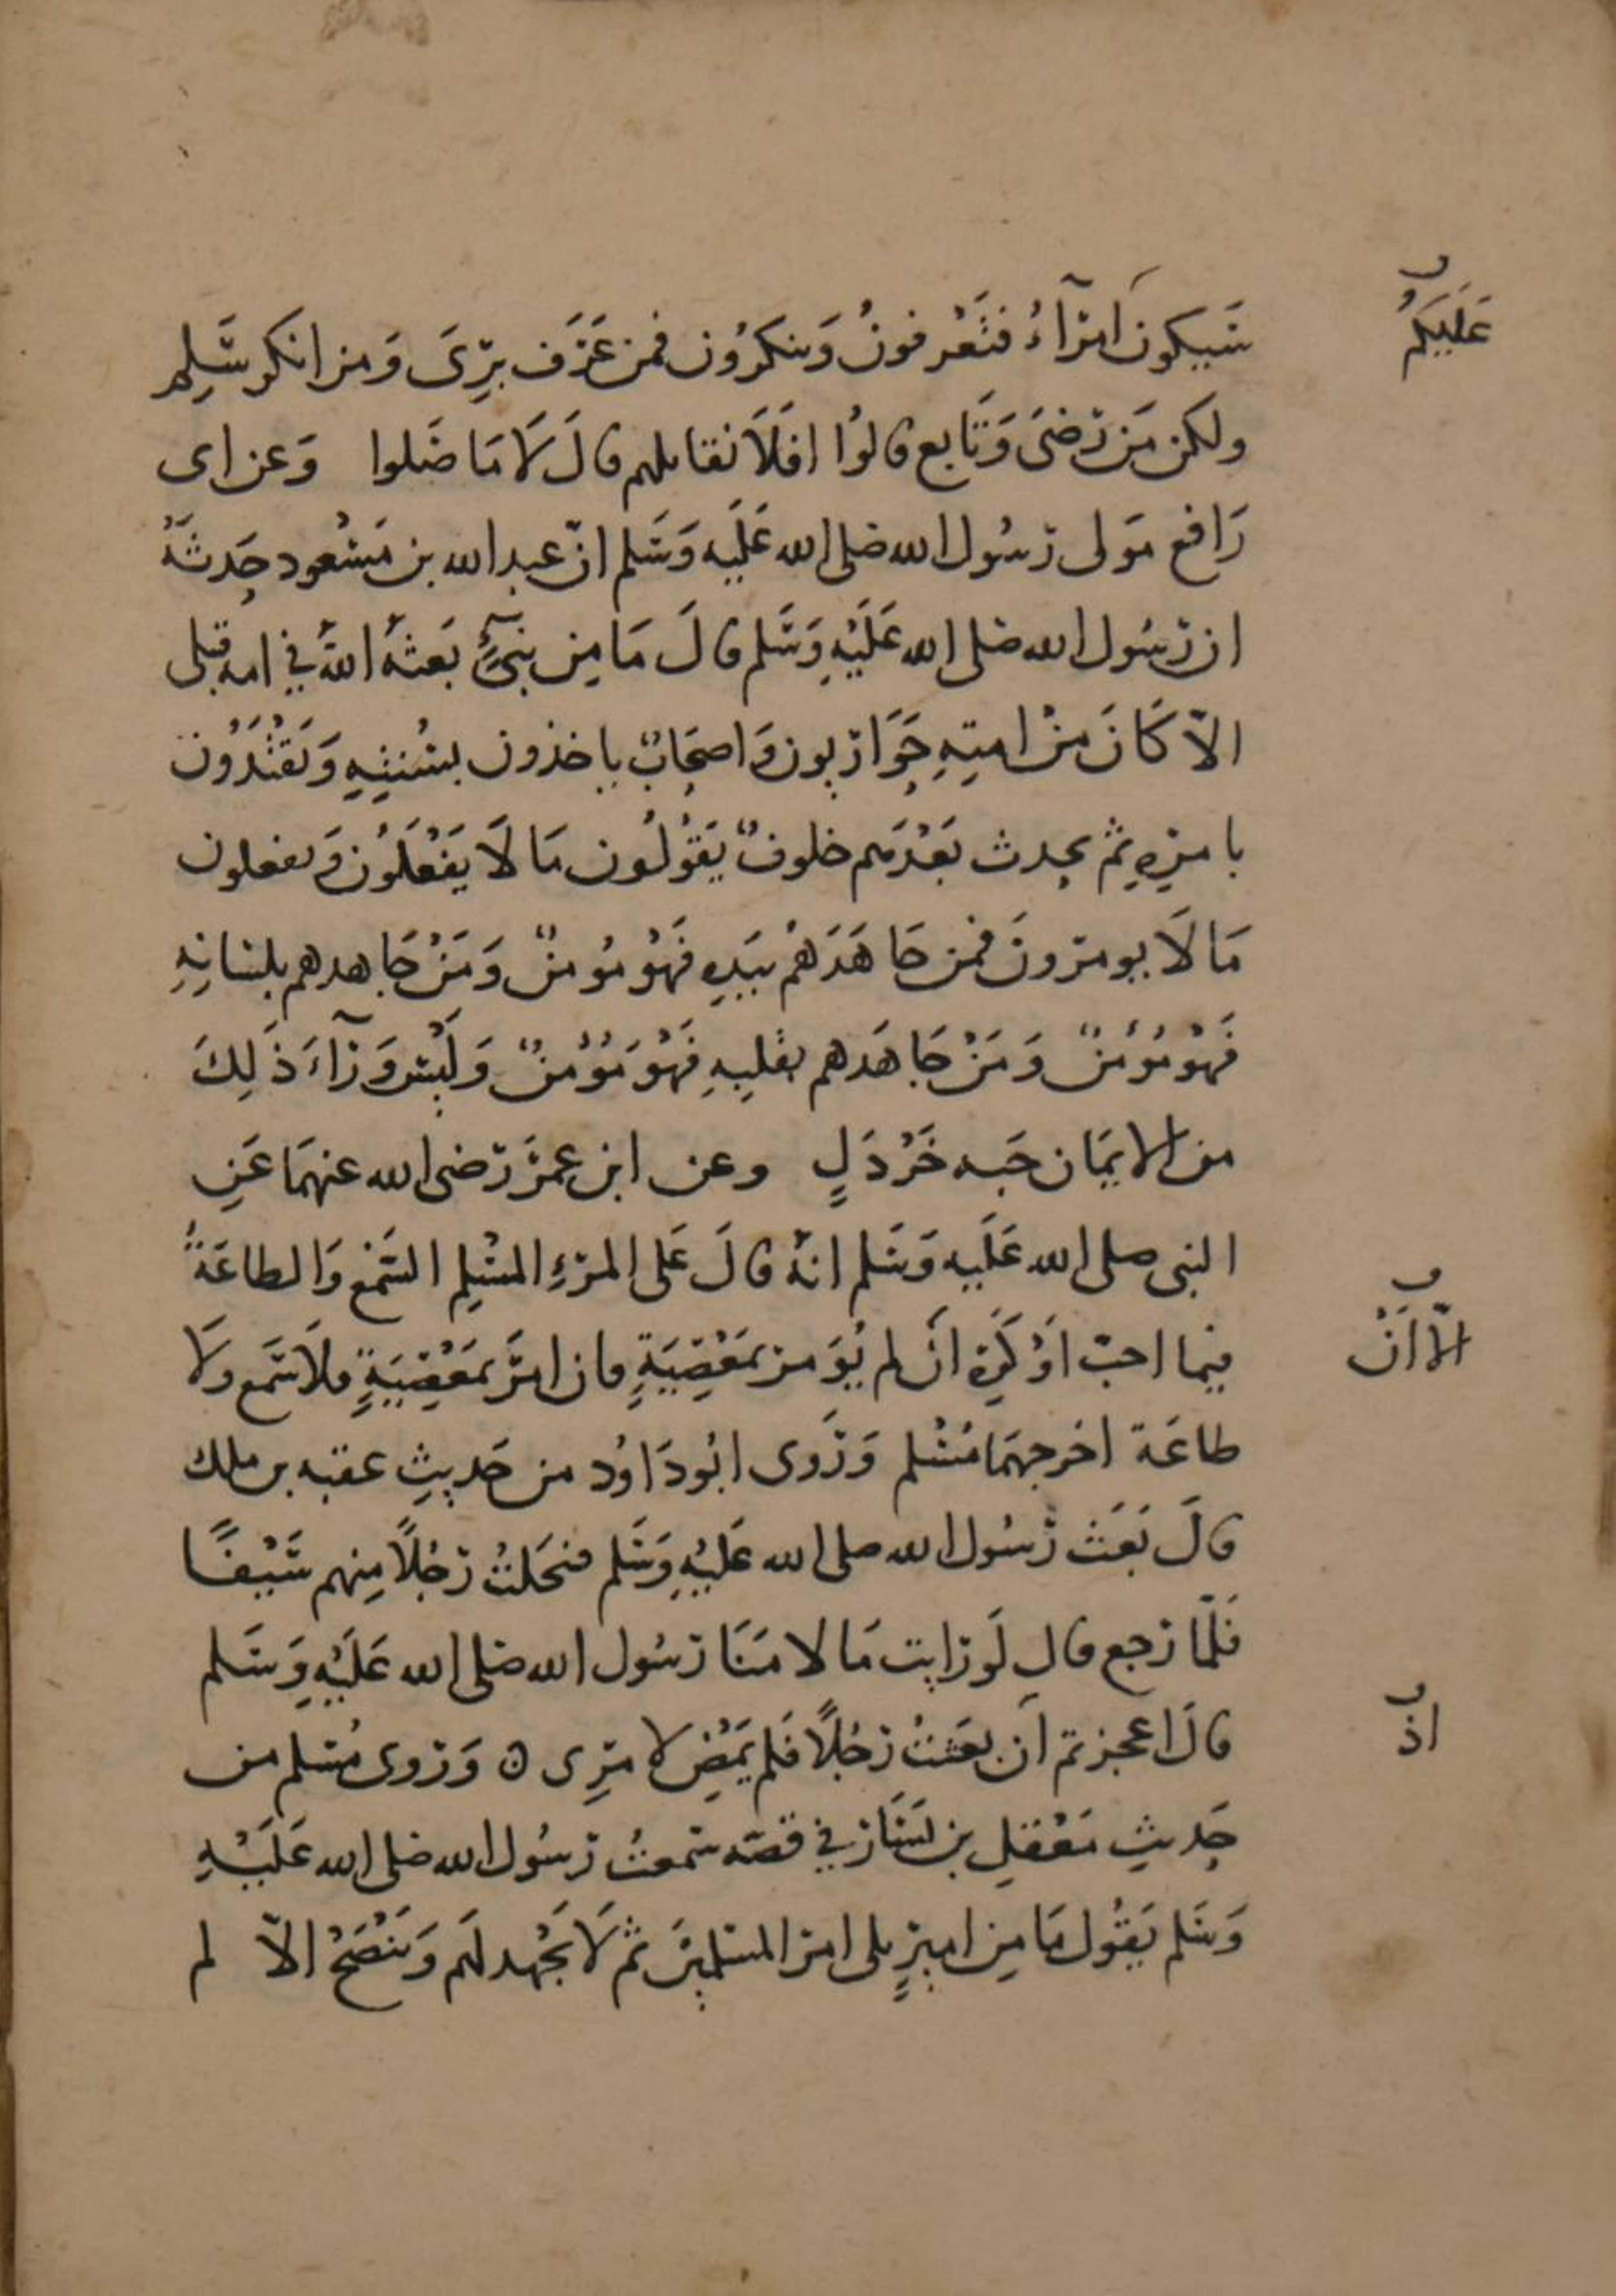 سَيكون اُمَرآءُ فتَعْرفونُ وَتنكرُون فمن عَرَف بَرِئَ وَمن انكر سَلِم
عَلَيكُم
ولكن مَن رَضىَ وَتَابع قالوُا افَلاَ نقاتلهم قالَ لاَ مَا صَلوا وَعن ابى
رَافع مَولى رَسُول الله صلى الله عَلَيه وَسَلم انّ عبد الله بن مَسْعود حَدثَهُ
ان رَسُول الله صلى الله عَلَيْهِ وَسَلم قالَ مَا مِن نبىٍّ بَعثهُ اللهُ في امه قبلى
الاّ كَانَ مِنْ امتِهِ حَوَاريون وَاصحَابٌ ياخذون بسُنتِهِ وَيَقْتَدُونَ
بامرِهِ ثم يحدث بَعْدَهم خلوفٌ يَقوُلُون مَا لاَ يَفْعَلُون وَيفعلون
مَا لاَ يومرونَ فمن جَاهَدَهُم بيَدِهِ فَهُوَ مُومنٌ وَمَنْ جَاهدهم بلسَانِهِ
فَهوَ مُؤمنٌ وَمَنْ جَاهَدهم بقلبِهِ فَهُوَ مُؤْمنٌ وَلَيْسَ وَرَآءَ ذَلِكَ
من الايمَان حَبه خَرْدَلٍ وعن ابن عمَر رَضى الله عنهمَا عَنِ
النبى صلى الله عَلَيه وَسَلم انهُ قالَ عَلى المَرْءِ المسْلِم السَّمْعُ وَالطاعَةُ
فيما احبّ اَوْ كَرِهَ اَن لم يُؤمَر بمَعْصِيَةٍ فان امرَ بمَعْصِيَةٍ فلاَ سَمع وَلاَ
الاّ اَنْ
طاعَة اخرجهمَا مُسْلم وَرَوى ابُو دَاوُد من حَديثِ عقبه بن ملك
قالَ بَعَثَ رَسُول الله صلى الله عَلَيْهِ وَسَلم فسَلحتُ رَجُلاً مِنهم سَيْفًا
فَلمَّا رَجع قال لَو رَايت مَا لامَنَا رَسُول الله صلى الله عَلَيْهِ وَسَلم
قالَ اعجزتم اَن بعَثتُ رَجُلاً فَلم يَمْضِ لامرِى ه وَرَوى مُسلم من
اذ
حَديثِ مَعْقلِ بن يَسَار في قصّه سَمعتُ رَسُول الله صلى الله عَلَيْهِ
وَسَلم يَقوُل مَا مِن اميرٍ يلى امرَ المسْلمينَ ثم لاَ يَجْهد لهَم وَيَنْصَحُ الاّ لم